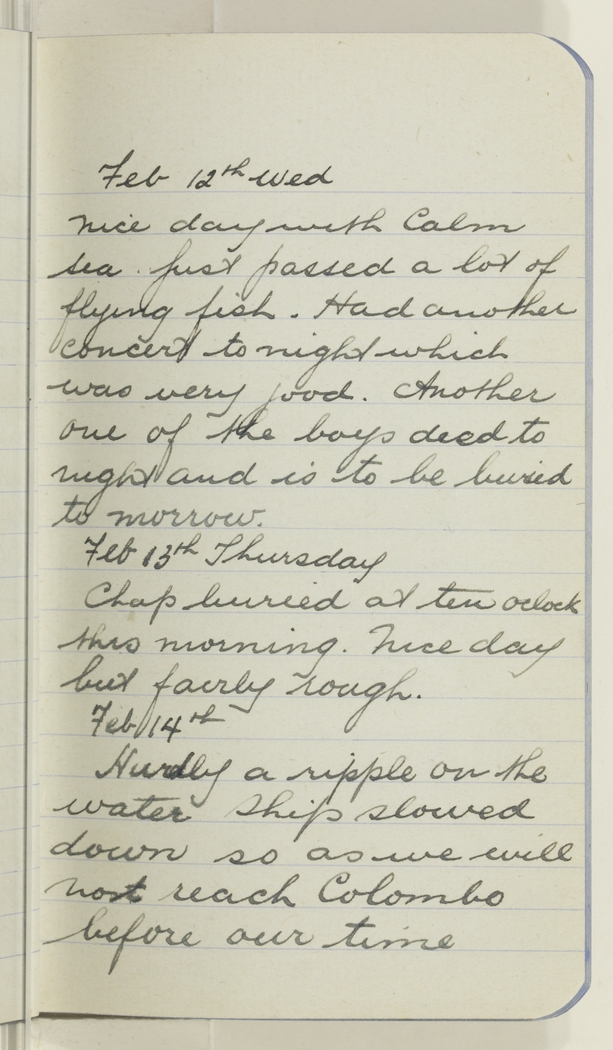 Feb 12th Wed
Nice day with Calm
sea. Just passed a lot of
flying fish. Had another
concert to night which
was very good. Another
one of the boys died to
night and is to be buried
to morrow.
Feb 13th Thursday
Chap buried at ten oclock
this morning. Nice day
but fairly rough.
Feb 14th
Hardly a ripple on the
water Ship slowed
down so as we will
not reach Colombo
before our time